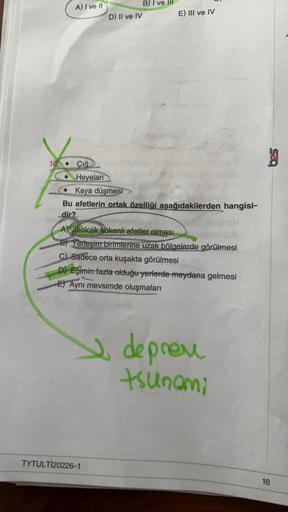 A) I ve II
B) I ve III
D) II ve IV
E) III ve IV
bes
16. • Çığ
• Heyelan
• Kaya düşmesi
Bu afetlerin ortak özelliği aşağıdakilerden hangisi-
dir?
A) Jeolojik kökenli afetler olması
B) Yerleşim birimlerine uzak bölgelerde görülmesi
C) Sadece orta kuşakta görülmesi
D) Eğimin fazla olduğu yerlerde meydana gelmesi
E) Aynı mevsimde oluşmaları
deprem
tsunami
TYTULTİ20226-1
16